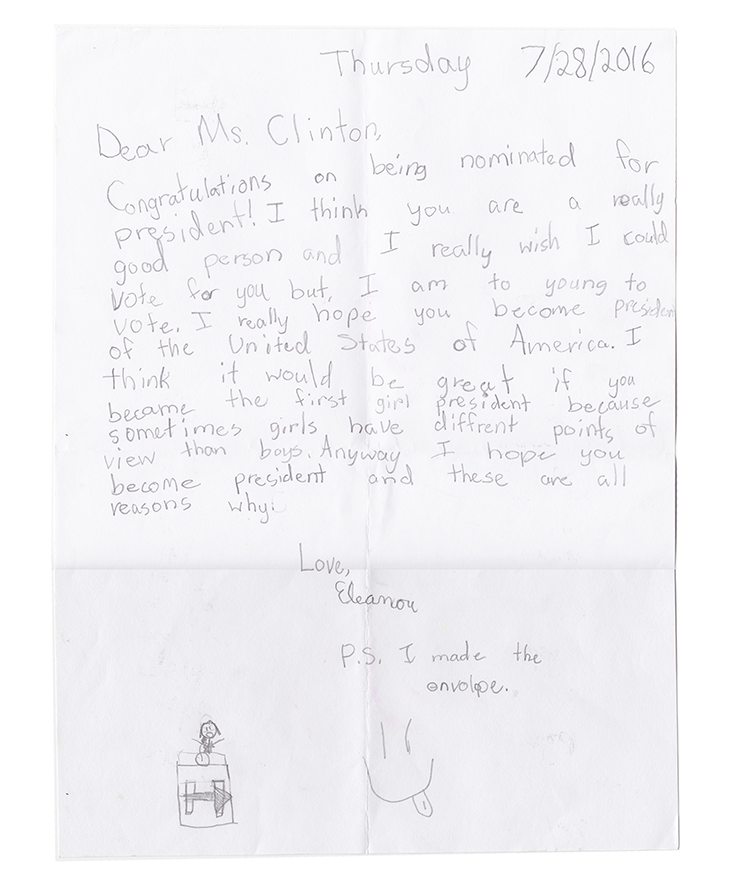 Thursday 7/28/2016
Dear Ms. Clinton,
Congratulations on being nominated for
president! I think you are a really
good person and I really wish I could
vote for you but, I am to young to
vote. I really hope you become president
of the United States of America. I
think it would be great if you
became the first girl president because
sometimes girls have diffrent points of
view than boys. Anyway I hope you
become president and these are all
reasons why!
Love,
Eleanor
P.S. I made the
envolpe.
H